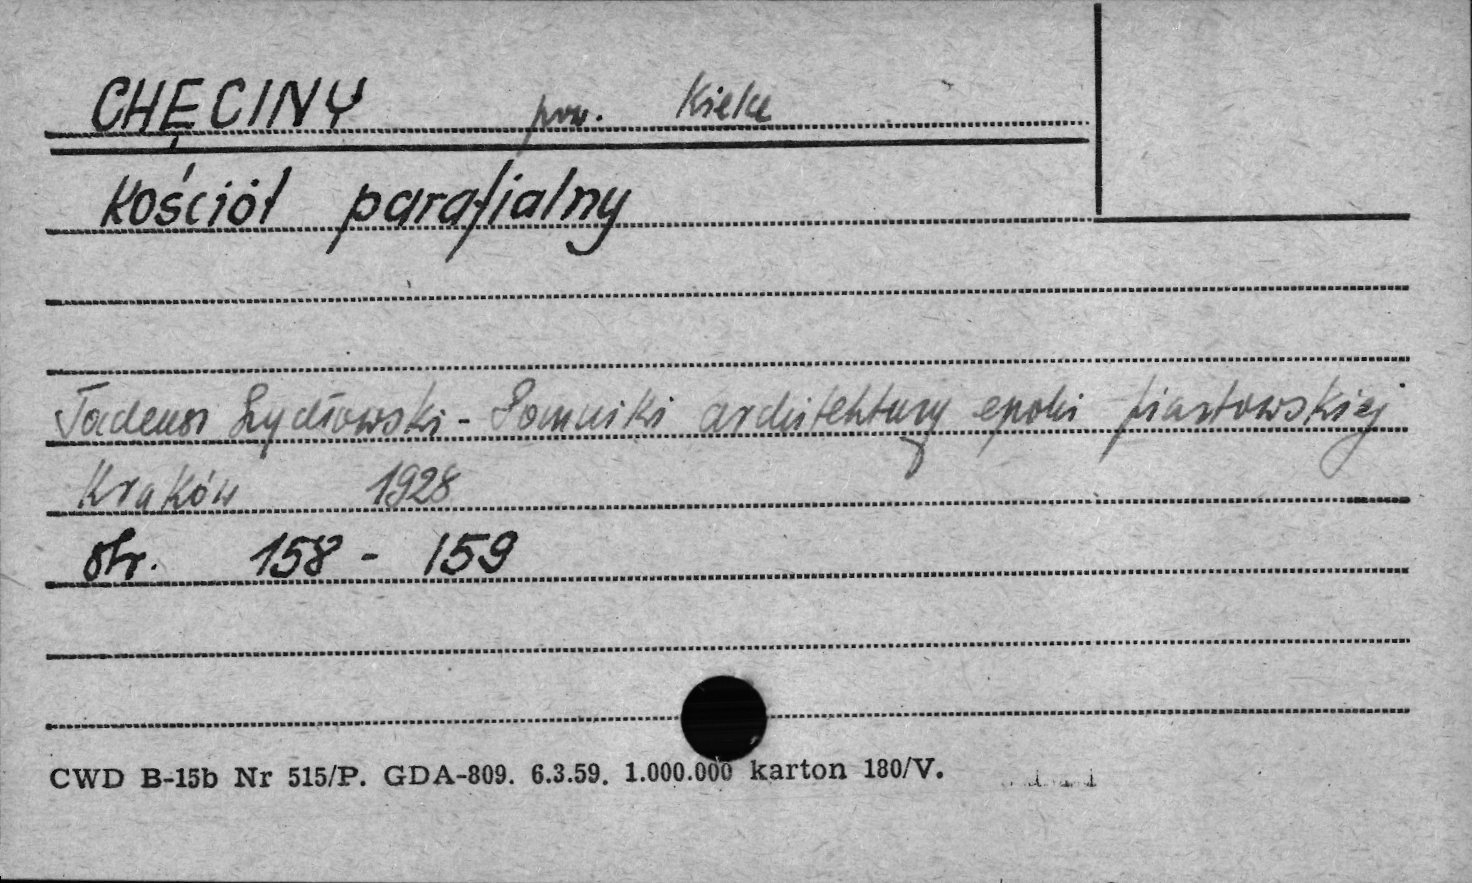 CHĘCINY pow. Kielce
Kościół parafialny
Tadeusz Szydłowski - Pomniki architektury epoki piastowskiej
Kraków 1928
str. 158 - 159
CWD B-15b Nr 515/P. GDA-809. 6.3.59. 1.000.000 karton 180/V.